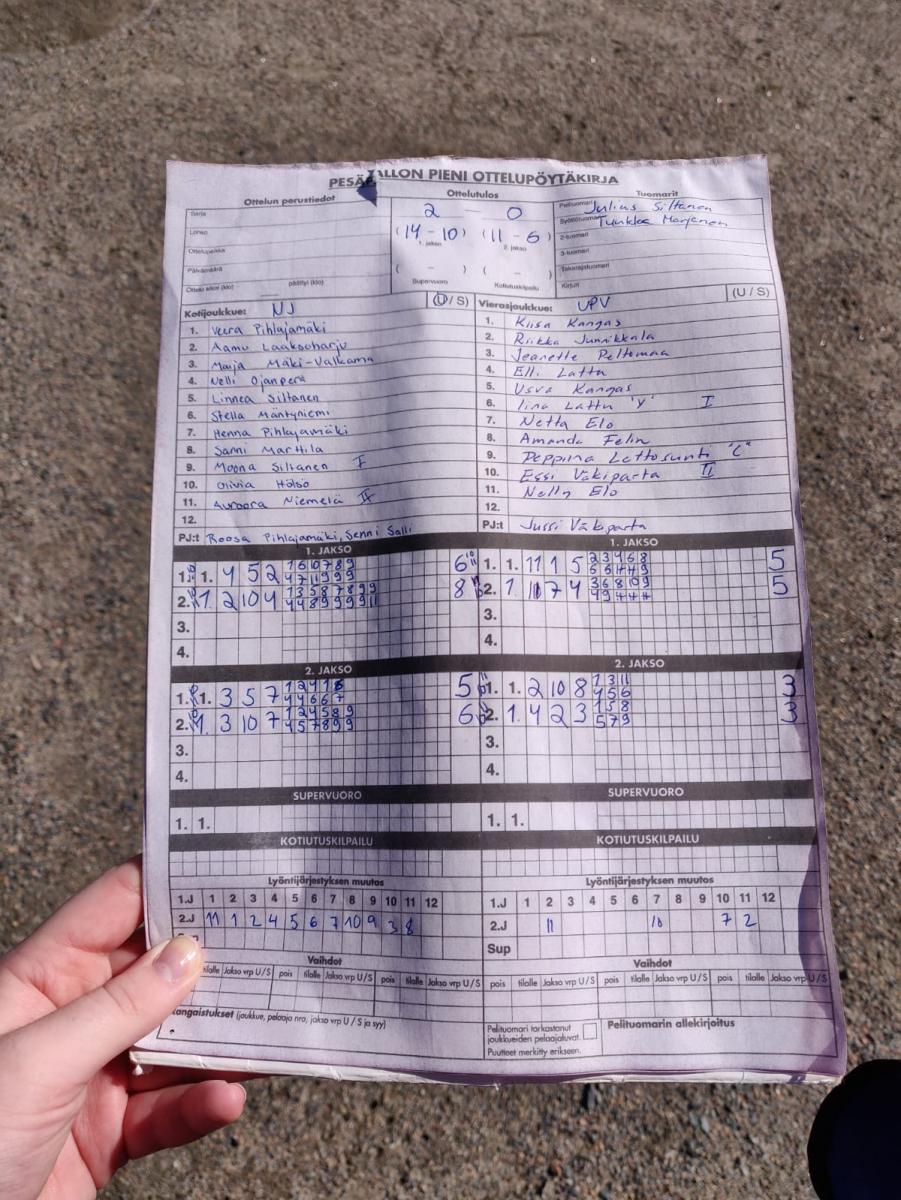 PESÄPALLON PIENI OTTELUPÖYTÄKIRJA
Ottelun perustiedot
Sarja
Lohko
Ottelupaikka
Päivämäärä
Ottelu alkoi (klo) päättyi (klo)
Ottelutulos
2 — 0
(14 - 10) (11 - 6)
1. jakso 2. jakso
( - ) ( - )
Supervuoro Kotiutuskilpailu
Tuomarit
Pelituomari Julius Siltanen
Syöttötuomari Tuukka Marjanen
2-tuomari
3-tuomari
Takarajatuomari
Kirjuri
Kotijoukkue: NJ (U / S)
1. Veera Pihlajamäki
2. Aamu Laaksoharju
3. Maija Mäki-Valkama
4. Nelli Ojanperä
5. Linnea Siltanen
6. Stella Mäntyniemi
7. Henna Pihlajamäki
8. Sanni Marttila
9. Moona Siltanen I
10. Olivia Hölsö
11. Auroora Niemelä II
12.
PJ:t Roosa Pihlajamäki, Senni Salli
Vierasjoukkue: UPV (U / S)
1. Kiisa Kangas
2. Riikka Junnikkala
3. Jeanette Peltomaa
4. Elli Lattu
5. Usva Kangas
6. Iina Lattu "V" I
7. Netta Elo
8. Amanda Felin
9. Peppiina Lettosunti "C"
10. Essi Väkiparta II
11. Nelly Elo
12.
PJ:t Jussi Väkiparta
1. JAKSO
1. 1. 4 5 2 6
2. 1. 2 10 4 8
3.
4.
1. JAKSO
1. 1. 11 1 5 5
2. 1. 10 7 4 5
3.
4.
2. JAKSO
1. 1. 3 5 7 5
2. 1. 3 10 7 6
3.
4.
2. JAKSO
1. 1. 2 10 8 1 3 11 3
4 5 6
2. 1. 4 2 3 1 5 8 3
5 7 9
3.
4.
SUPERVUORO
1. 1.
SUPERVUORO
1. 1.
KOTIUTUSKILPAILU
KOTIUTUSKILPAILU
Lyöntijärjestyksen muutos
1.J 1 2 3 4 5 6 7 8 9 10 11 12
2.J 11 1 2 4 5 6 7 10 9 3 8
Lyöntijärjestyksen muutos
1.J 1 2 3 4 5 6 7 8 9 10 11 12
2.J 11 10 7 2
Sup
Vaihdot
tilalle Jakso vrp U / S pois tilalle Jakso vrp U / S pois tilalle Jakso vrp U / S
Vaihdot
pois tilalle Jakso vrp U / S pois tilalle Jakso vrp U / S pois tilalle Jakso vrp U / S
angaistukset (joukkue, pelaaja nro, jakso vrp U / S ja syy)
Pelituomari tarkastanut
joukkueiden pelaajaluvat.
Puutteet merkitty erikseen.
Pelituomarin allekirjoitus